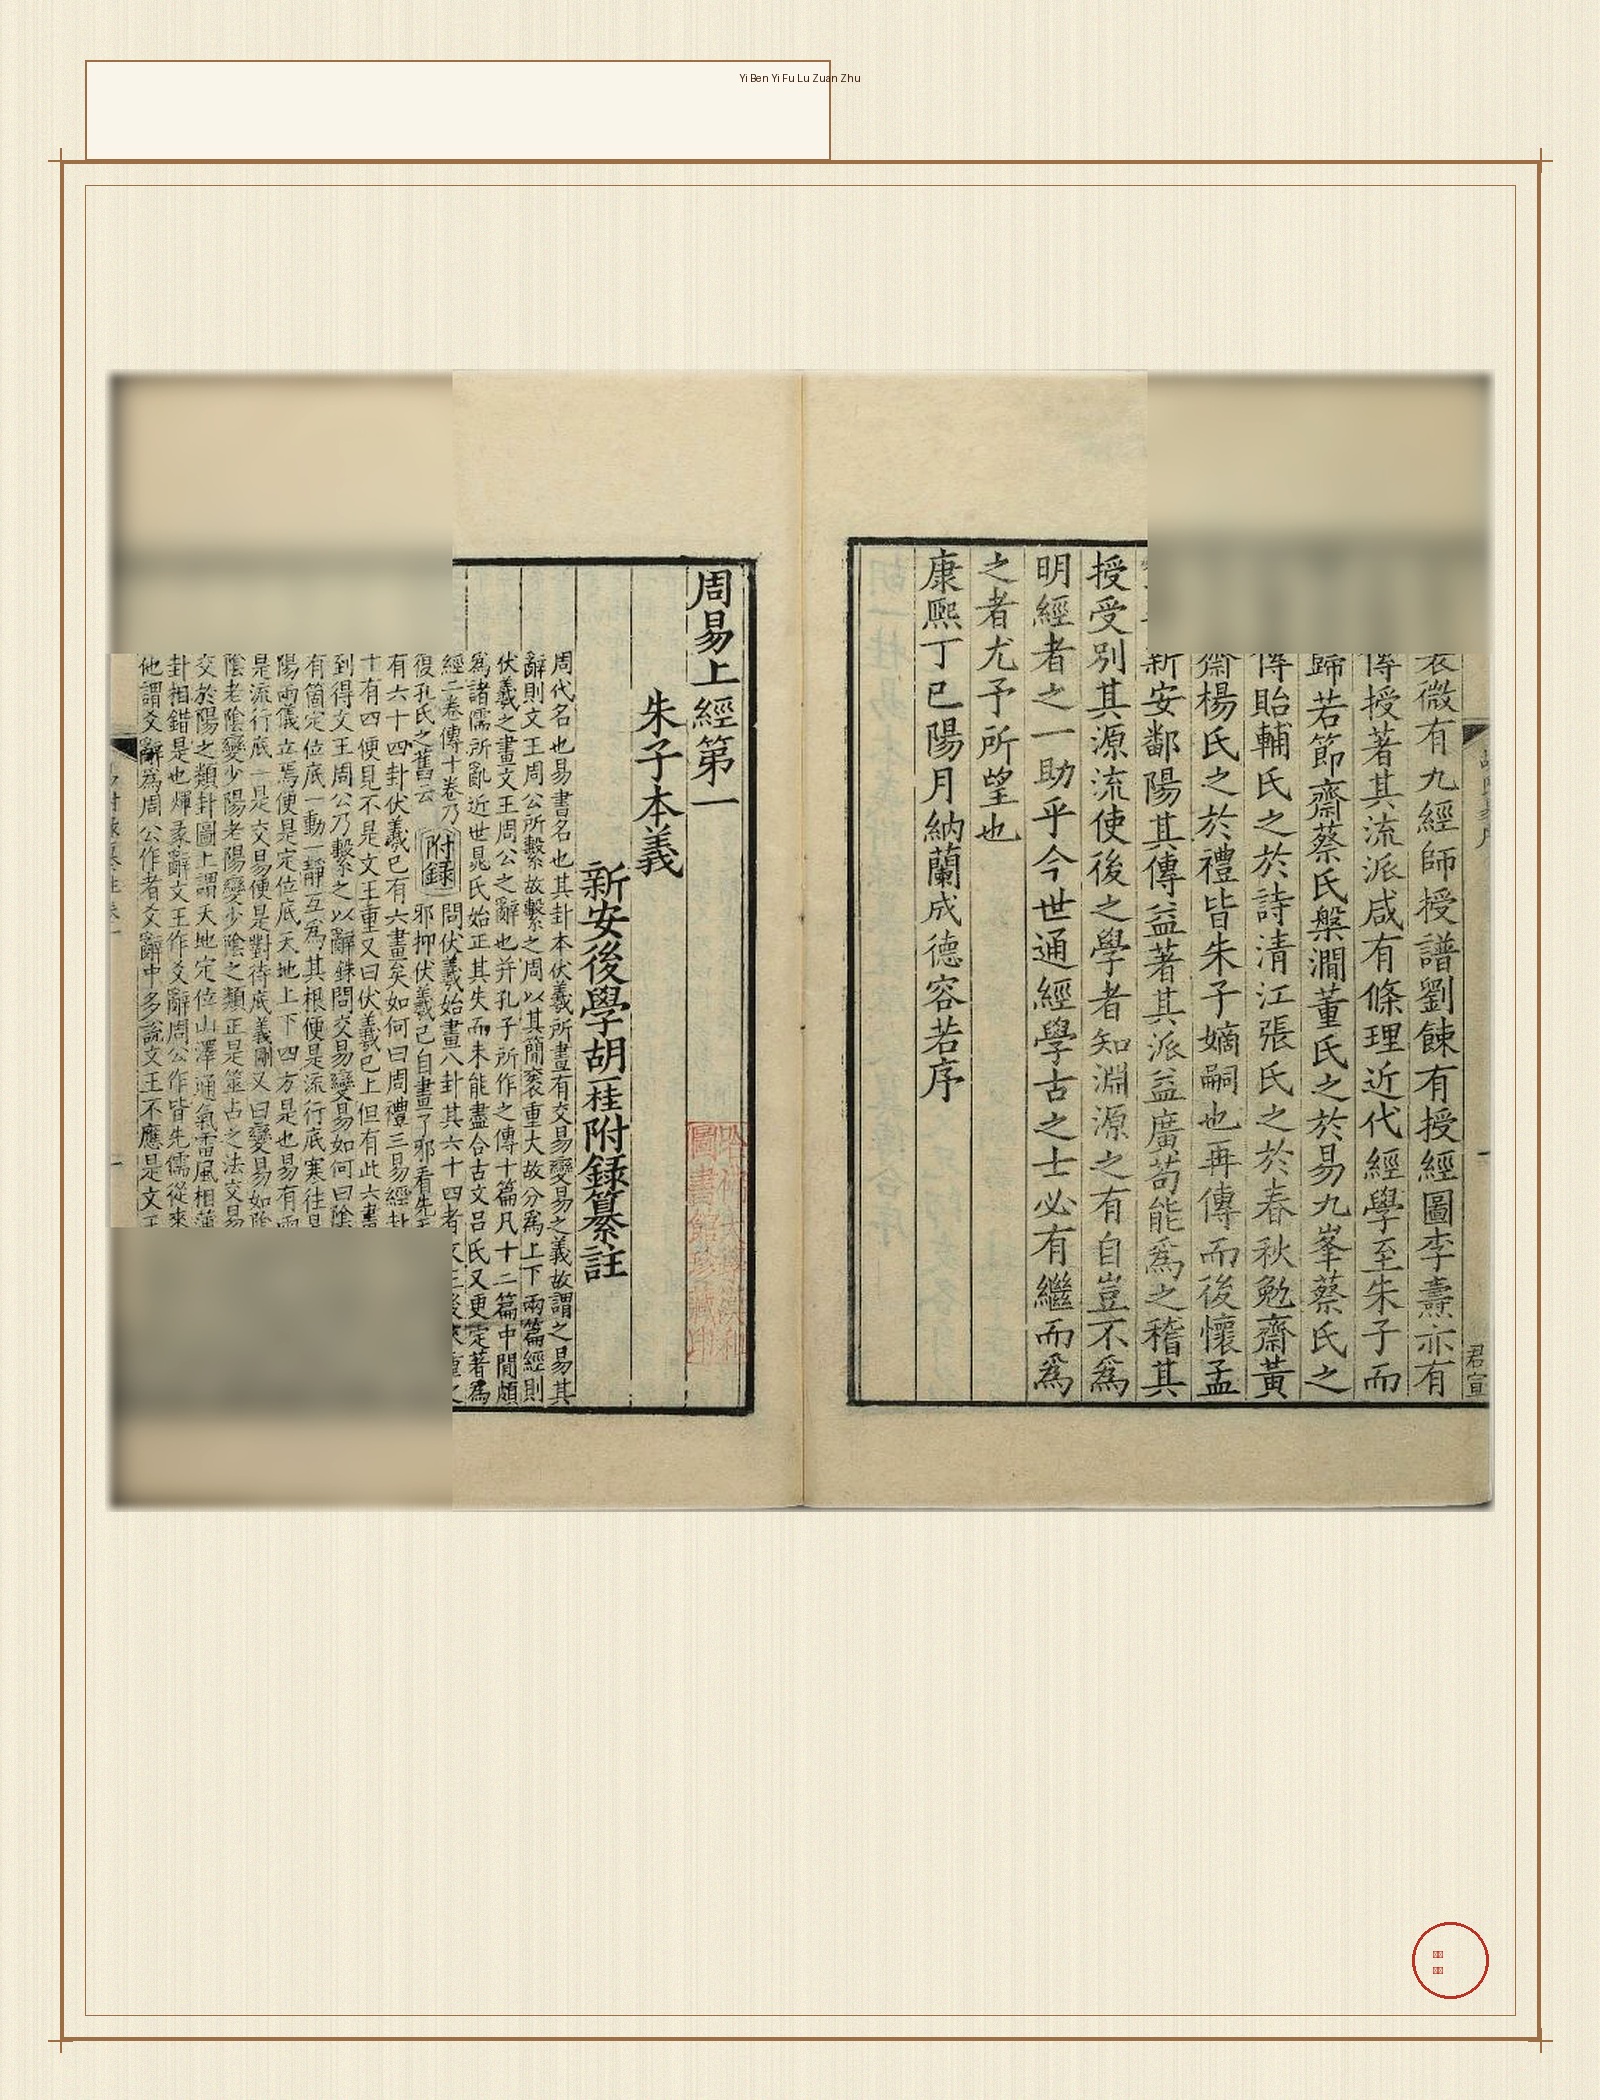 微有九經師授譜劉餗有授經圖李燾亦有
傳授著其流派咸有條理近代經學至朱子而
歸若節齋蔡氏槃澗董氏之於易九峯蔡氏之
傳貽輔氏之於詩清江張氏之於春秋勉齋黃
齋楊氏之於禮皆朱子嫡嗣也再傳而後懷孟
新安鄱陽其傳益著其派益廣苟能爲之稽其
授受別其源流使後之學者知淵源之有自豈不爲
明經者之一助乎今世通經學古之士必有繼而爲
之者尤予所望也
康熙丁巳陽月納蘭成德容若序
君宣
周易上經第一
朱子本義
新安後學胡一桂附錄纂註
周代名也易書名也其卦本伏羲所畫有交易變易之義故謂之易其
辭則文王周公所繫故繫之周以其簡袠重大故分爲上下兩篇經則
伏羲之畫文王周公之辭也并孔子所作之傳十篇凡十二篇中間頗
爲諸儒所亂近世晁氏始正其失而未能盡合古文呂氏又更定著爲
經二卷傳十卷乃
復孔氏之舊云
附録
問伏羲始畫八卦其六十四者
邪抑伏羲已自畫了邪看先天
有六十四卦伏羲已有六畫矣如何曰周禮三易經卦
十有四便見不是文王重又曰伏羲已上但有此六畫
到得文王周公乃繫之以辭銖問交易變易如何曰陰
有箇定位底一動一靜互爲其根便是流行底寒往
陽兩儀立焉便是定位底天地上下四方是也易有兩
是流行底一是交易便是對待底義剛又曰變易如陰
陰老陰變少陽老陽變少陰之類正是筮占之法交易
交於陽之類卦圖上謂天地定位山澤通氣雷風相薄
卦相錯是也煇彖辭文王作爻辭周公作皆先儒從來
他謂爻辭爲周公作者爻辭中多說文王不應是文王
Yi Ben Yi Fu Lu Zuan Zhu